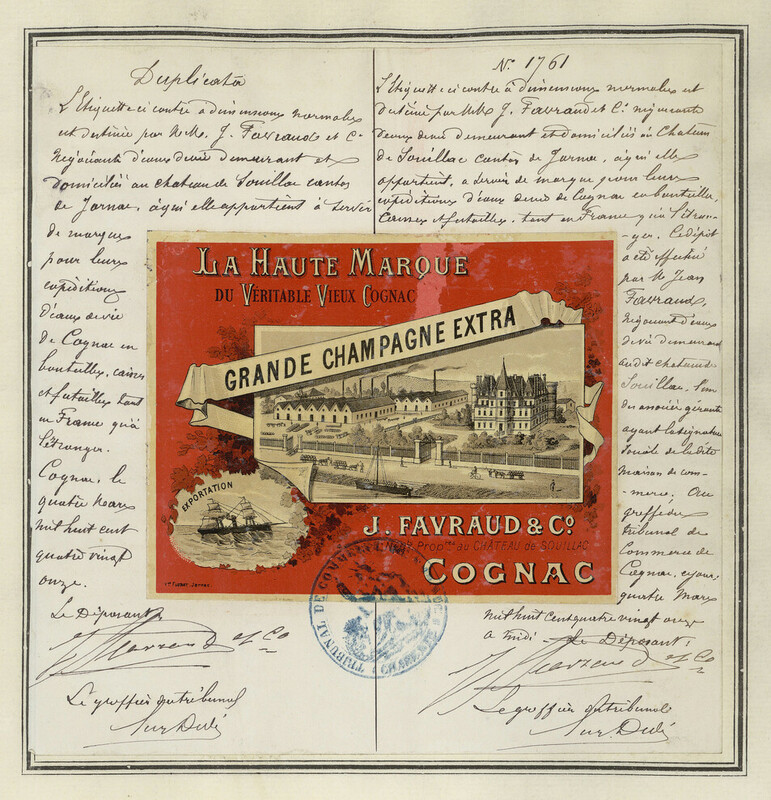 Duplicata
L'Etiquette ci contre a dimensions normales
est destinée par M.M. J. Favraud et Cie
Négociants d'eaux de vie demeurant et
domiciliés au chateau de Souillac canton
de Jarnac, à qui elle appartient à servir
de marque
pour leurs
expéditions
d'eaux de vie
de Cognac en
bouteilles, caisses
et futailles tant
en France qu'à
l'étranger.
Cognac, le
quatre Mars
mil huit cent
quatre vingt
onze.
Le Déposant
J Favraud et Co
Le greffier du tribunal
No 1761
L'Etiquette ci contre à dimensions normales est
destinée par M.M. J. Favraud et Co négociants
d'eaux de vie demeurant et domiciliés au Chateau
de Souillac canton de Jarnac, à qui elle
appartient, a servir de marque pour leurs
expéditions d'eaux de vie de Cognac en bouteilles,
Caisses et futailles, tant en France qu'à l'étran-
-ger. Le dépôt
a été effectué
par M Jean
Favraud,
Négociant d'eaux
de vie demeurant
au dit chateau de
Souillac, l'un
des associés gérants
ayant la signature
sociale de la dite
maison de com-
-merce, Au
greffe du
tribunal de
Commerce de
Cognac, ce jour
quatre Mars
mil huit cent quatre vingt onze
a midi Le Déposant:
J Favraud et Co
Le greffier du tribunal
LA HAUTE MARQUE
DU VÉRITABLE VIEUX COGNAC
GRANDE CHAMPAGNE EXTRA
EXPORTATION
J. FAVRAUD & Co
Propres au CHÂTEAU DE SOUILLAC
COGNAC
TRIBUNAL DE COMMERCE